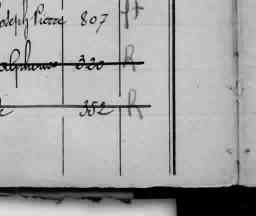 oseph Pierre 807 ff
Alphonse 320 R
352 R